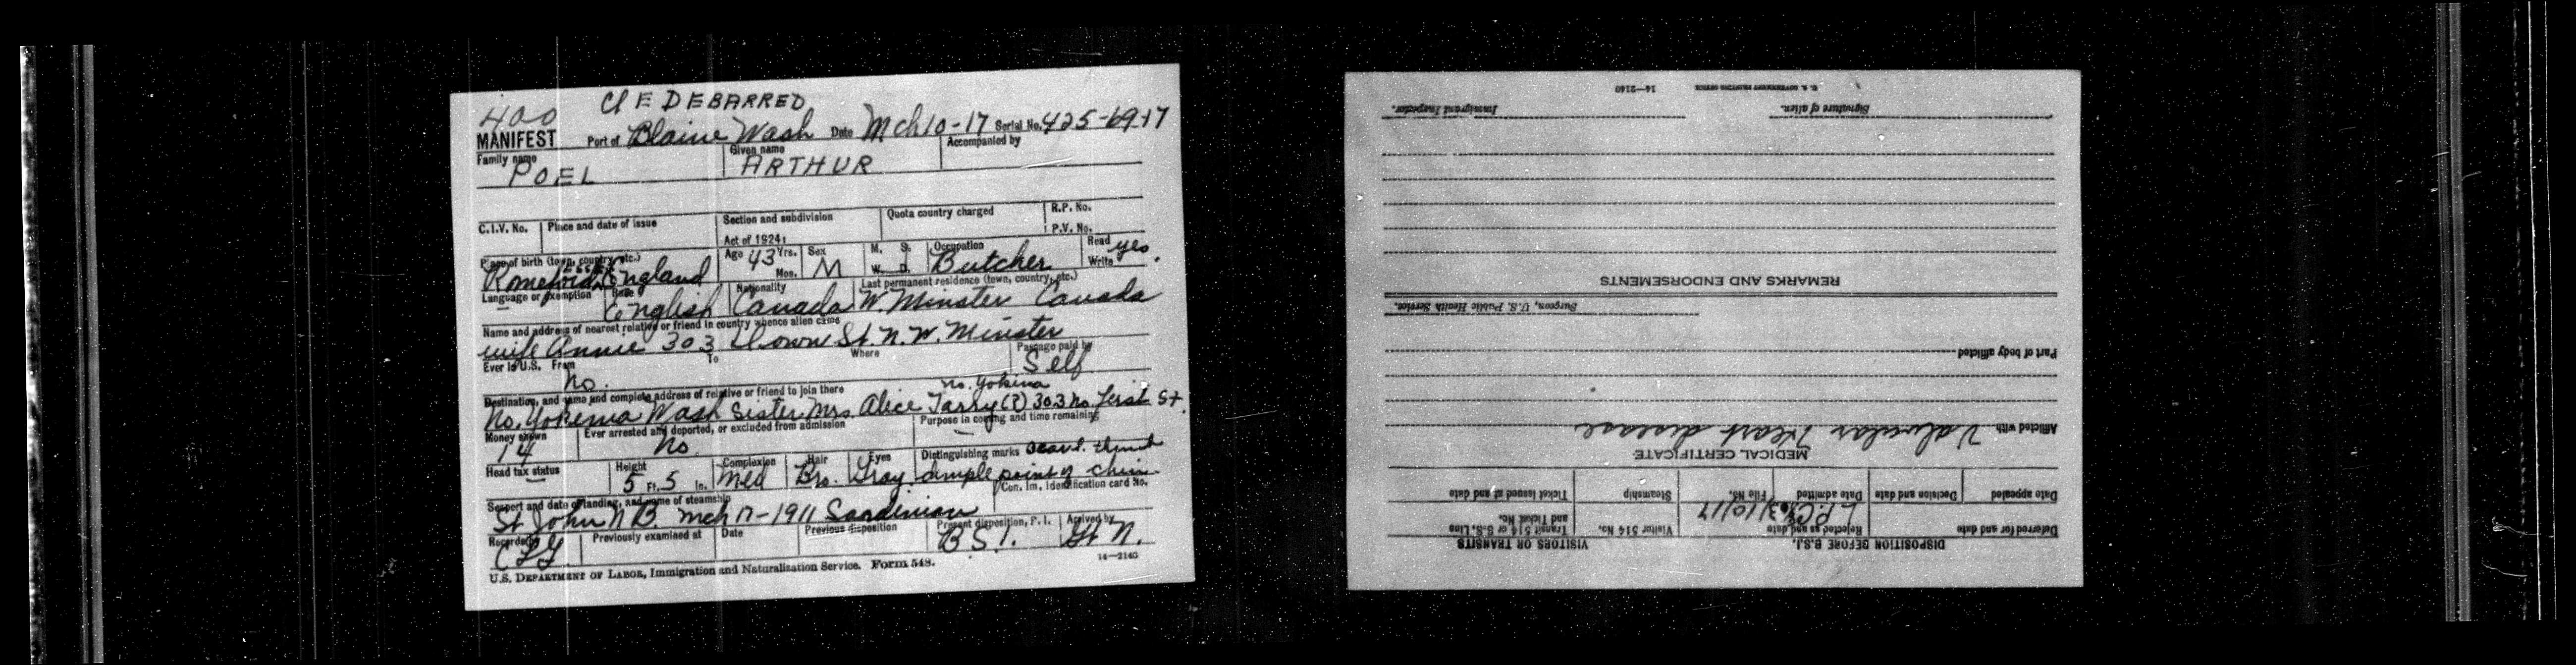 400 DEBARRED
MANIFEST Port of Blaine Wash Date Mch 10-17 Serial No. 425-6917
Family name Given name Accompanied by
POEL ARTHUR
C.I.V. No. Place and date of issue Section and subdivision Quota country charged R.P. No.
Act of 1924: P.V. No.
Place of birth (town, country, etc.) Age 43 Yrs. Sex M. S. Occupation Read yes
Essex
Romeford England Mos. M W. D. Butcher Write
Language or exemption Race Nationality Last permanent residence (town, country, etc.)
— English Canada W. Minster Canada
Name and address of nearest relative or friend in country whence alien came
wife Annie 303 St. N. W. Minster
Ever in U.S. From To Where Passage paid by
no. Self
Destination, and name and complete address of relative or friend to join there no. Yokima
No. Yokema Wash Sister Mrs. Alice Tarry (?) 303 No. First St.
Money shown Ever arrested and deported, or excluded from admission Purpose in coming and time remaining
14 No. —
Head tax status Height Complexion Hair Eyes Distinguishing marks
— 5 Ft. 5 In. Med Bro. Gray dimple point of chin
Con. Im. Identification card No.
Seaport and date of landing, and name of steamship
St John N B. Mch 17-1911 Sardinian
Records by Previously examined at Date Previous disposition Present disposition, P. I. Arrived by
B S I. Gt N.
U.S. DEPARTMENT OF LABOR, Immigration and Naturalization Service. Form 548. 14—2140
DISPOSITION BEFORE B.S.I. VISITORS OR TRANSITS
Deferred for and date Rejected as and date Visitor 514 No. Transit 514 or S.S. Line and Ticket No.
L.P.C. 3/10/17
Date appealed Decision and date Date admitted File No. Steamship Ticket issued at and date
MEDICAL CERTIFICATE
Afflicted with Valvular Heart disease
Part of body afflicted
Surgeon, U.S. Public Health Service.
REMARKS AND ENDORSEMENTS
Signature of alien. Immigrant Inspector.
U. S. GOVERNMENT PRINTING OFFICE 14—2140